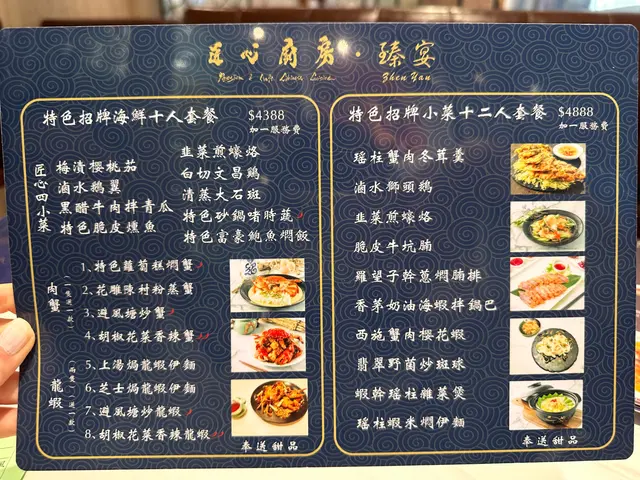 匠心廚房·臻宴
Passion & Craft Chinese Cuisine
Zhen Yan
特色招牌海鮮十人套餐 $4388
加一服務費
匠心四小菜
梅漬櫻桃茄
滷水鵝翼
黑醋牛肉拌青瓜
特色脆皮燻魚
韭菜煎蠔烙
白切文昌鷄
清蒸大石斑
特色砂鍋啫時蔬
特色富豪鮑魚燜飯
肉蟹
(一隻選一款)
1、特色蘿蔔糕燜蟹
2、花雕陳村粉蒸蟹
3、避風塘炒蟹
4、胡椒花菜香辣蟹
龍蝦
(兩隻選一款)
5、上湯焗龍蝦伊麵
6、芝士焗龍蝦伊麵
7、避風塘炒龍蝦
8、胡椒花菜香辣龍蝦
奉送甜品
特色招牌小菜十二人套餐 $4888
加一服務費
瑤柱蟹肉冬茸羹
滷水獅頭鵝
韭菜煎蠔烙
脆皮牛坑腩
羅望子幹蔥燜腩排
香茅奶油海蝦拌鍋巴
西施蟹肉櫻花蝦
翡翠野菌炒斑球
蝦幹瑤柱雜菜煲
瑤柱蝦米燜伊麵
奉送甜品